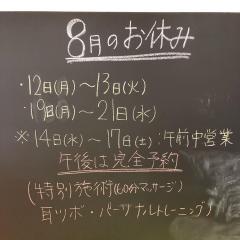 8月のお休み
・12日(月)～13日(火)
・19日(月)～21日(水)
※14日(水)～17日(土):午前中営業
午後は完全予約
(特別施術(60分マッサージ)
耳ツボ・パーソナルトレーニング)